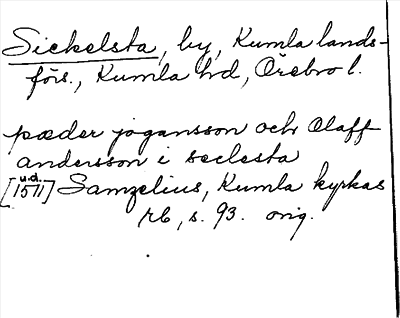 Sickelsta, by, Kumla lands-
förs., Kumla hd, Örebro l.
pæder jogansson och Olaff
andersson i seclesta
[u.d. 1571] Samzelius, Kumla kyrkas
rb, s. 93. orig.